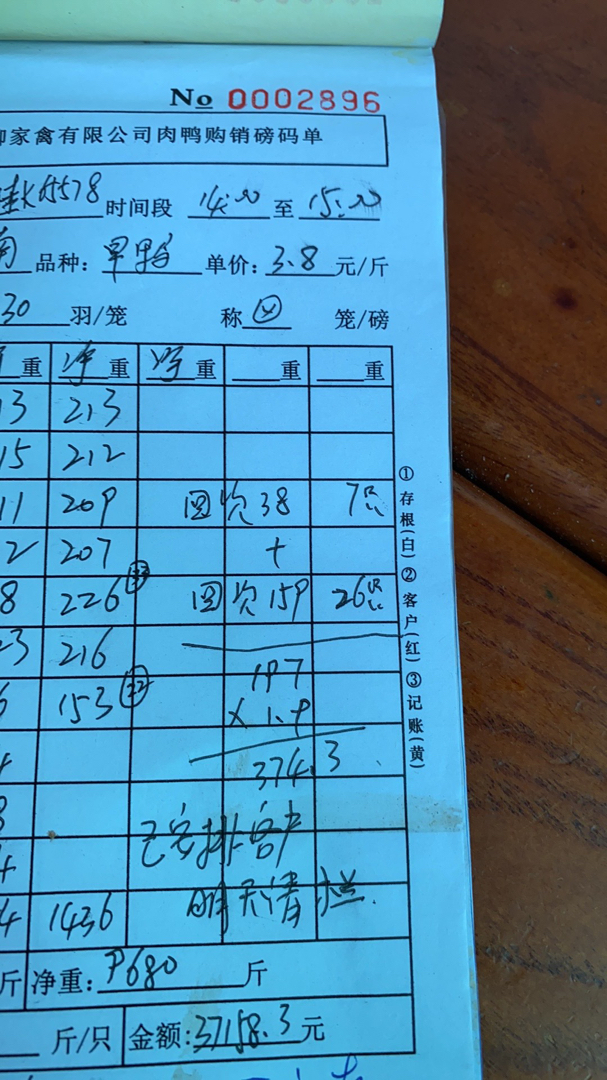 No 0002896
家禽有限公司肉鸭购销磅码单
桂K A5578 时间段 14:00 至 15:00
品种: 旱鸭 单价: 3.8 元/斤
30 羽/笼 称 四 笼/磅
重 净重 重 重 重
13 213
15 212
11 209 回收38 7只
2 207 +
8 226 33 回收159 26只
23 216
6 153 22 197
×1.9
4 374.3
8
4 已安排客户
4 1436 明天清栏
斤 净重: 9680 斤
斤/只 金额: 37158.3 元
①存根(白)②客户(红)③记账(黄)